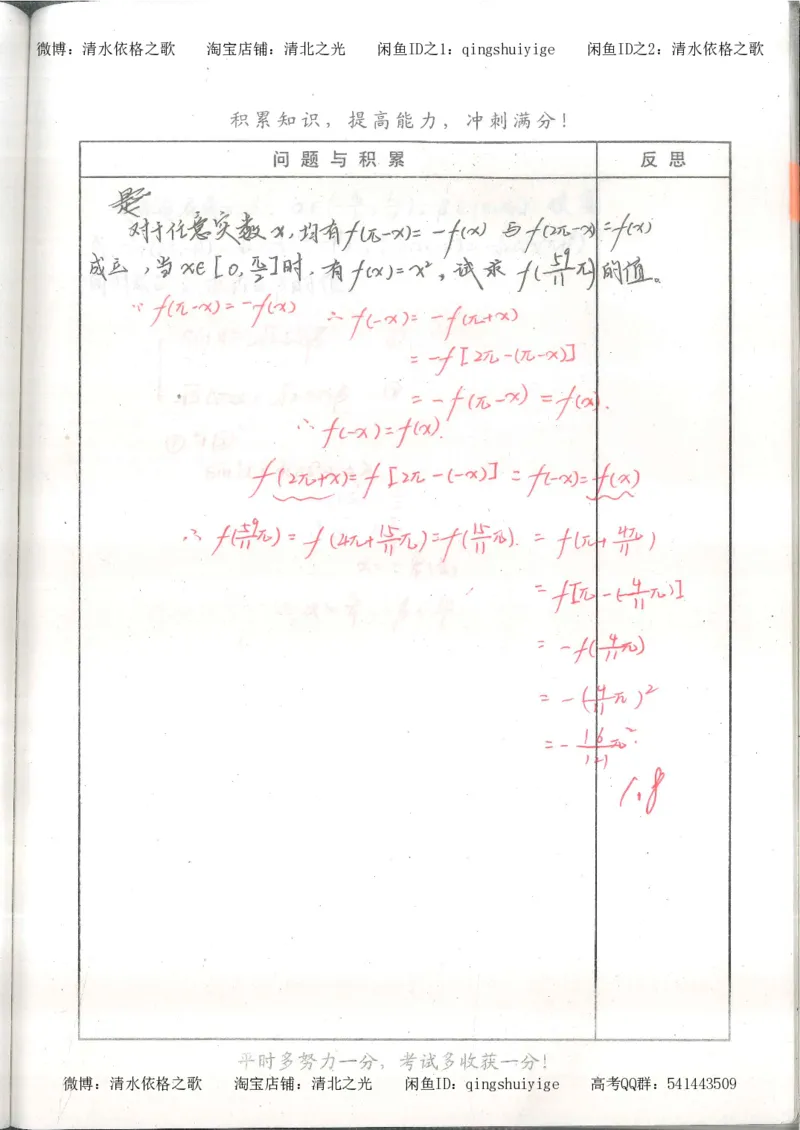 微博：清水依格之歌 淘宝店铺：清北之光 闲鱼ID之1：qingshuiyige 闲鱼ID之2：清水依格之歌
积累知识，提高能力，冲刺满分！
问题与积累 反思
是
对于任意实数x,均有f(π-x)=-f(x) 与f(2π-x)=f(x)
成立,当x∈[0,π/2]时,有f(x)=x²,试求 f(59/11π)的值。
∵ f(π-x)=-f(x) ∴ f(-x)= -f(π+x)
= -f[2π-(π-x)]
= -f(π-x) =f(x).
∴ f(-x)=f(x).
f(2π+x)=f[2π-(-x)] = f(-x)=f(x)
∴ f(59/11π)= f(4π+15/11π)=f(15/11π). = f(π+4π/11)
= f[π-(-4/11π)]
= -f(-4/11π)
= -(4/11π)²
= -16/121π².
1.8
平时多努力一分，考试多收获一分！
微博：清水依格之歌 淘宝店铺：清北之光 闲鱼ID：qingshuiyige 高考QQ群：541443509